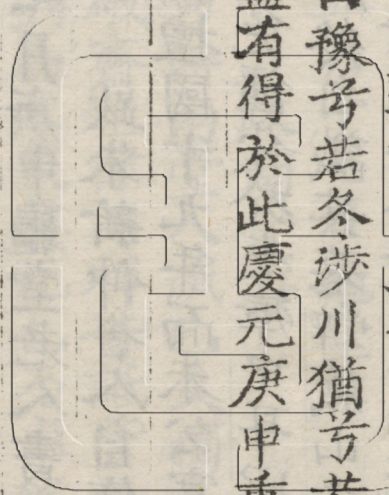 豫兮若冬涉川猶兮若
有得於此慶元庚申重